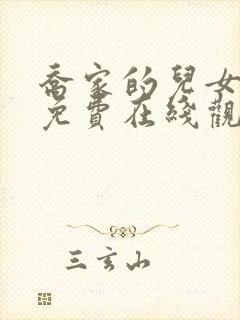 喬家的兒女
免費在綫觀
三玄山